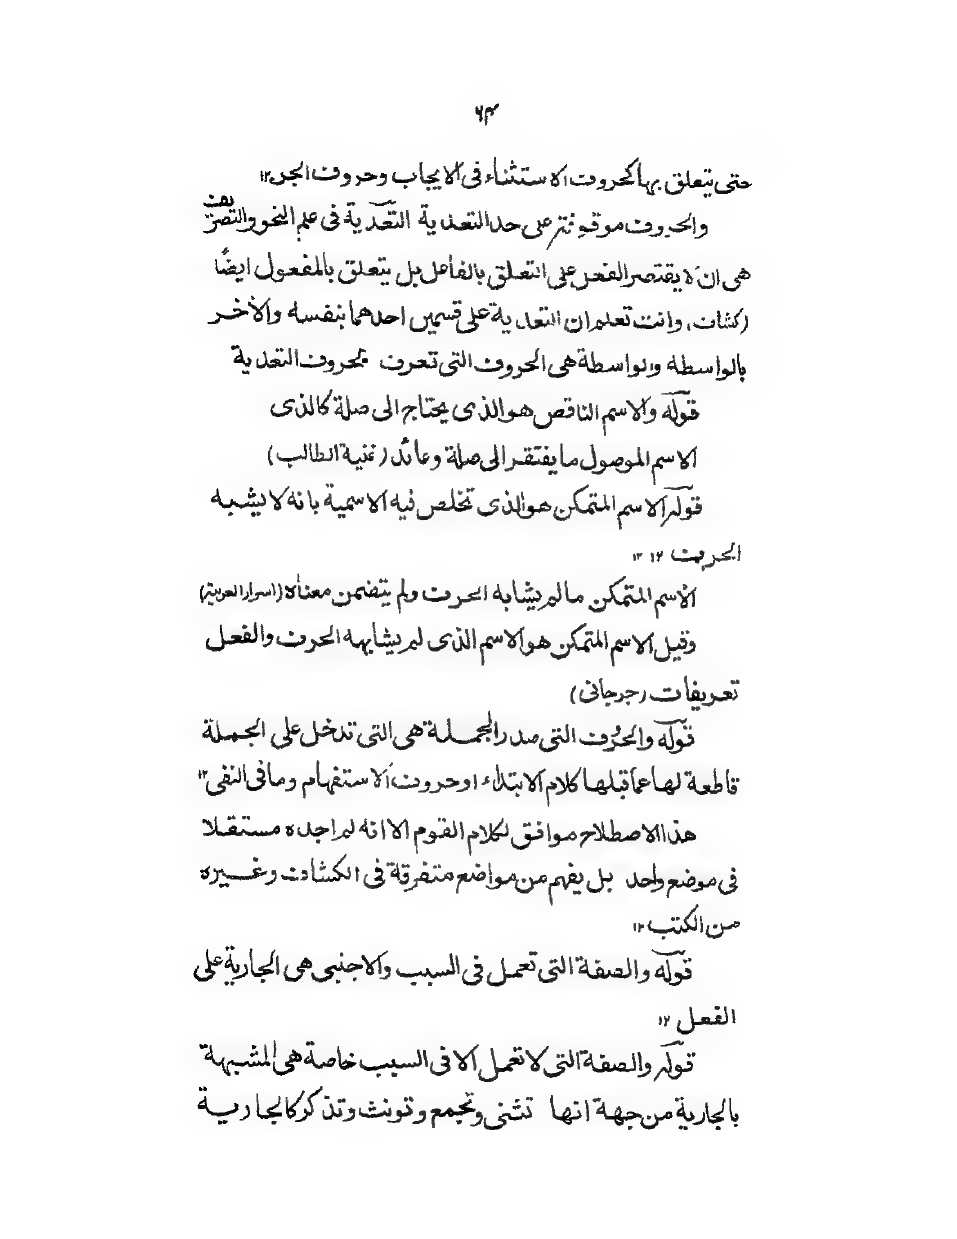 ۶۴
حتى يتعلق بها كحروف الاستثناء فى الايجاب وحروف الجر ۱۲
والحروف موقوفة على حد التعدية التعدية فى علم النحو والتصريف
هى ان لا يقتصر الفعل على التعلق بالفاعل بل يتعلق بالمفعول ايضًا
(كشاف) وانت تعلم ان التعدية على قسمين احدهما بنفسه والآخر
بالواسطه والواسطة هى الحروف التى تعرف بحروف التعدية
قوله والاسم الناقص هو الذى يحتاج الى صلة كالذى
الاسم الموصول ما يفتقر الى صلة وعائد (غنية الطالب)
قوله الاسم المتمكن هو الذى تخلص فيه الاسمية بانه لا يشبه
الحرف ۱۲ ۱۲
الاسم المتمكن مالم يشابه الحرف ولم يتضمن معناه (اسرار العربية)
وقيل الاسم المتمكن هو الاسم الذى لم يشابهه الحرف والفعل
تعريفات (جرجانى)
قوله والحرف التى صدر الجملة هى التى تدخل على الجملة
قاطعة لها عما قبلها كلام الابتداء او حروف الاستفهام وما فى النفى ۱۲
هذا الاصطلاح موافق لكلام القوم الا انه لم اجده مستقلا
فى موضع واحد بل يفهم من مواضع متفرقة فى الكشاف وغيره
من الكتب ۱۲
قوله والصفة التى تعمل فى السبب والاجنبى هى الجارية على
الفعل ۱۲
قوله والصفة التى لا تعمل الا فى السبب خاصة هى المشبهة
بالجارية من جهة انها تثنى وتجمع وتونث وتذكر كالجارية